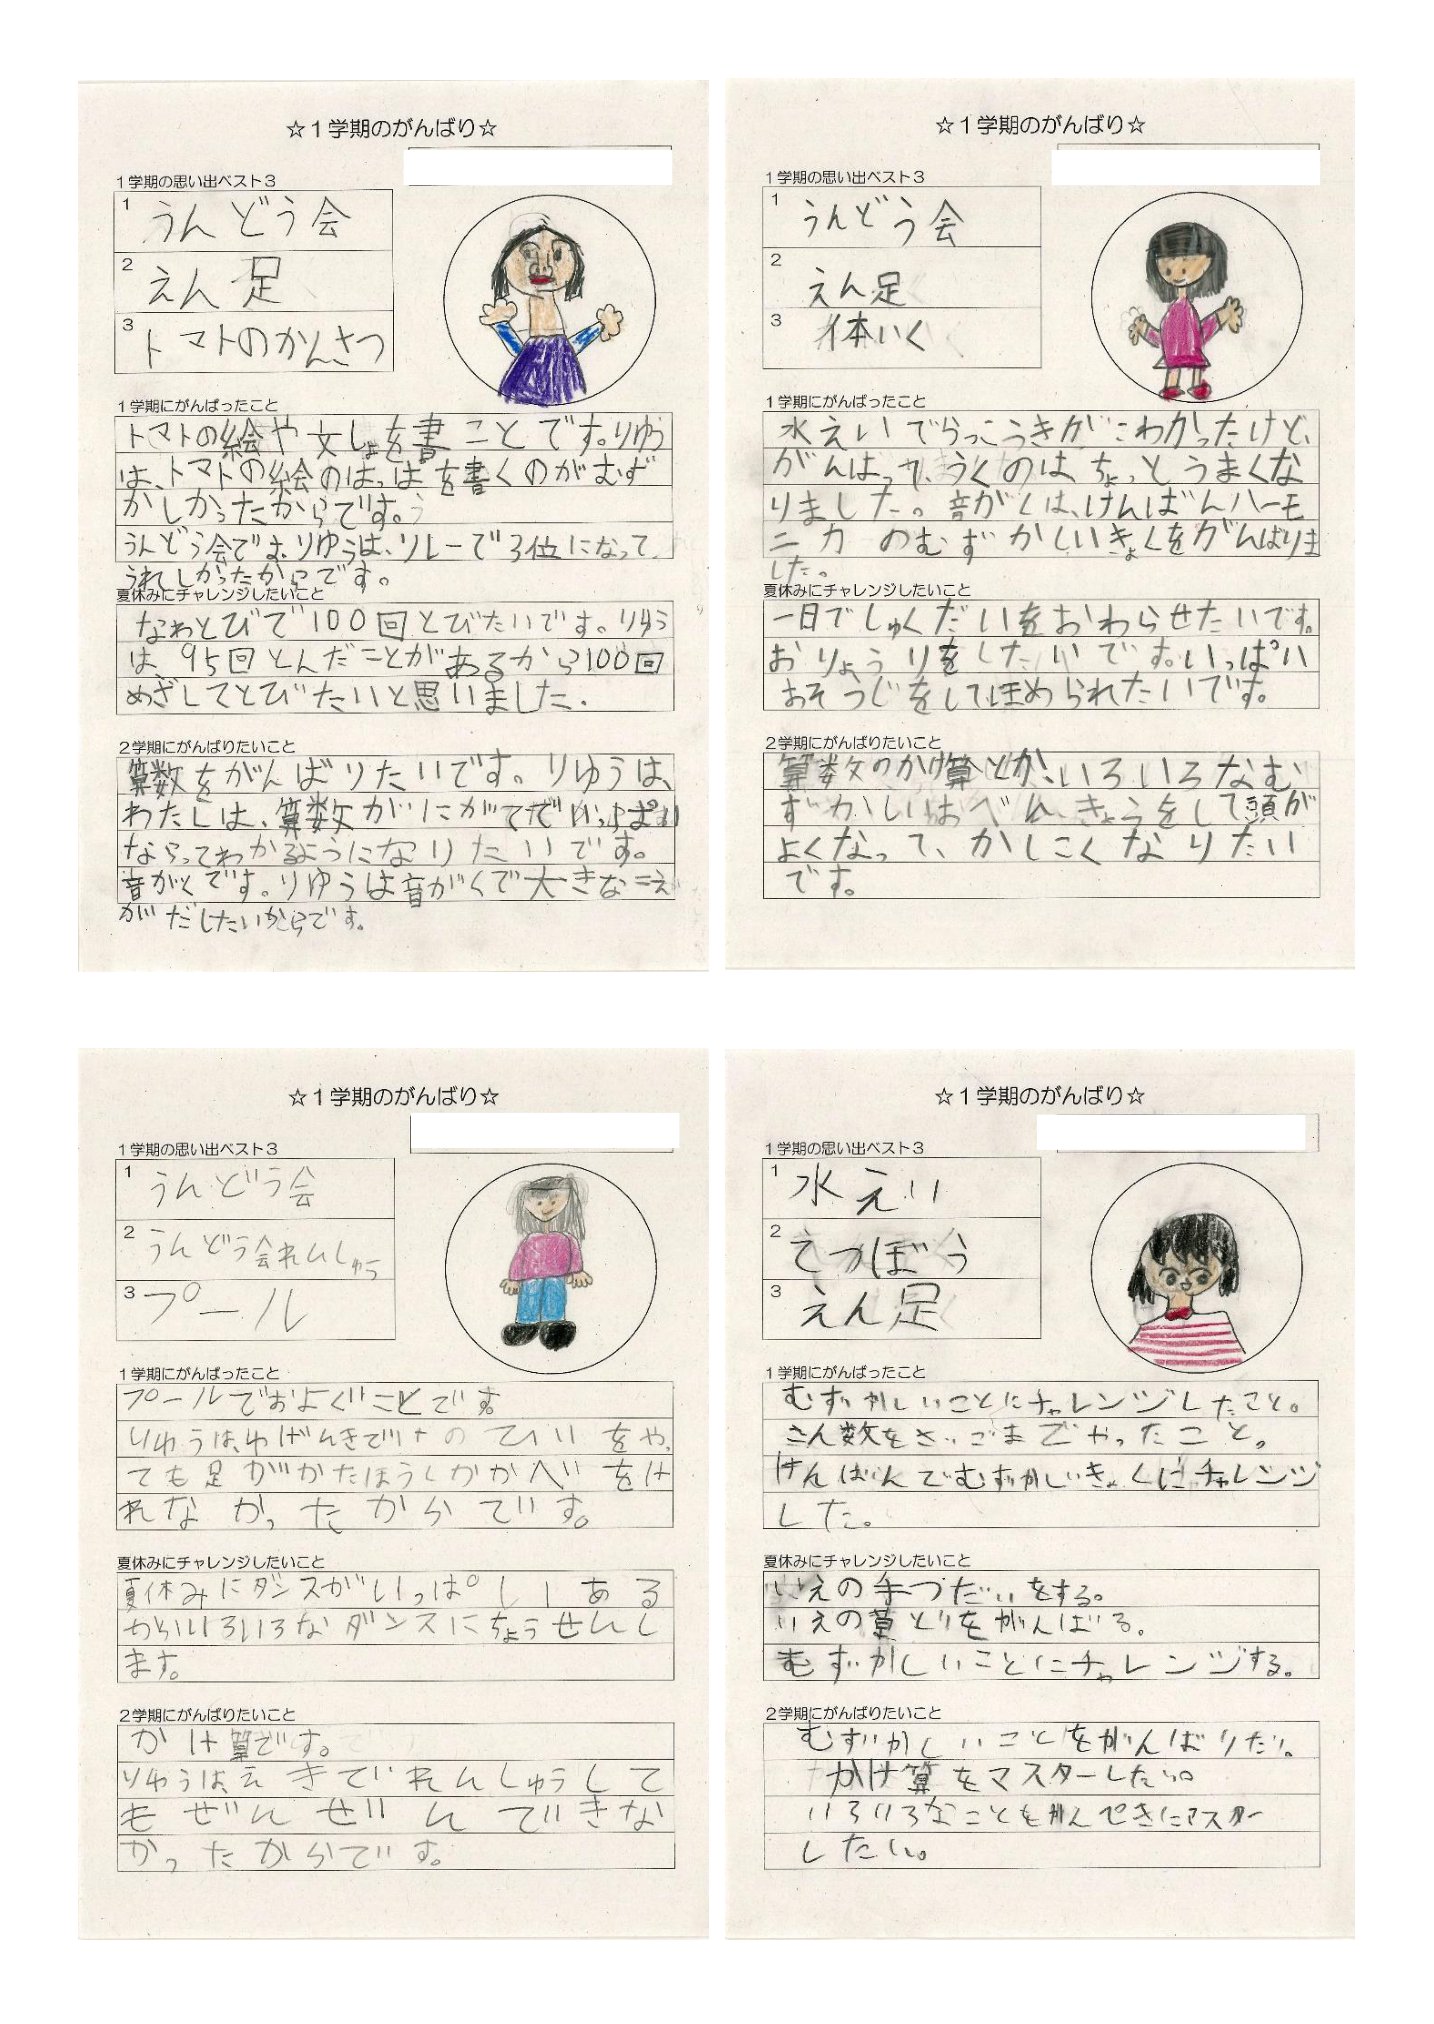 ☆1学期のがんばり☆
1学期の思い出ベスト3
1 うんどう会
2 えん足
3 トマトのかんさつ
1学期にがんばったこと
トマトの絵や文しょを書ことです。りゆう
は、トマトの絵のはっぱを書くのがむず
かしかったからです。
うんどう会では、りゆうは、リレーで3位になって、
うれしかったからです。
夏休みにチャレンジしたいこと
なわとびで100回とびたいです。りゆう
は、95回とんだことがあるから100回
めざしてとびたいと思いました.
2学期にがんばりたいこと
算数をがんばりたいです。りゆうは、
わたしは、算数がにがてだ
ならってわかるようになりたいです。
音がくです。りゆうは音がくで大きなこえ
がだしたいからです。
☆1学期のがんばり☆
1学期の思い出ベスト3
1 うんどう会
2 えん足
3 体いく
1学期にがんばったこと
水えいでらっこうきがこわかったけど、
がんばって、うくのは、ちょっとうまくな
りました。音がくは、けんばんハーモ
ニカのむずかしいきょくをがんばりま
した。
夏休みにチャレンジしたいこと
一日でしゅくだいをおわらせたいです。
おりょうりをしたいです。いっぱい
おそうじをしてほめられたいです。
2学期にがんばりたいこと
算数のかけ算とか、いろいろなむ
ずかしいおべんきょうをして頭が
よくなって、かしこくなりたい
です。
☆1学期のがんばり☆
1学期の思い出ベスト3
1 うんどう会
2 うんどう会れんしゅう
3 プール
1学期にがんばったこと
プールでおよぐことです。
りゆうは、
ても足がかたほうしかかべをけ
れなかったからです。
夏休みにチャレンジしたいこと
夏休みにダンスがいっぱいある
からいろいろなダンスにちょうせんし
ます。
2学期にがんばりたいこと
かけ算です。
りゆうは、えきでれんしゅうして
もぜんぜんできな
かったからです。
☆1学期のがんばり☆
1学期の思い出ベスト3
1 水えい
2 てつぼう
3 えん足
1学期にがんばったこと
むずかしいことにチャレンジしたこと。
さん数をさいごまでやったこと。
けんばんでむずかしいきょくにチャレンジ
した。
夏休みにチャレンジしたいこと
いえの手つだいをする。
いえの草とりをがんばる。
むずかしいことにチャレンジする。
2学期にがんばりたいこと
むずかしいことをがんばりたい。
かけ算をマスターしたい。
いろいろなことをかんぺきにマスター
したい。